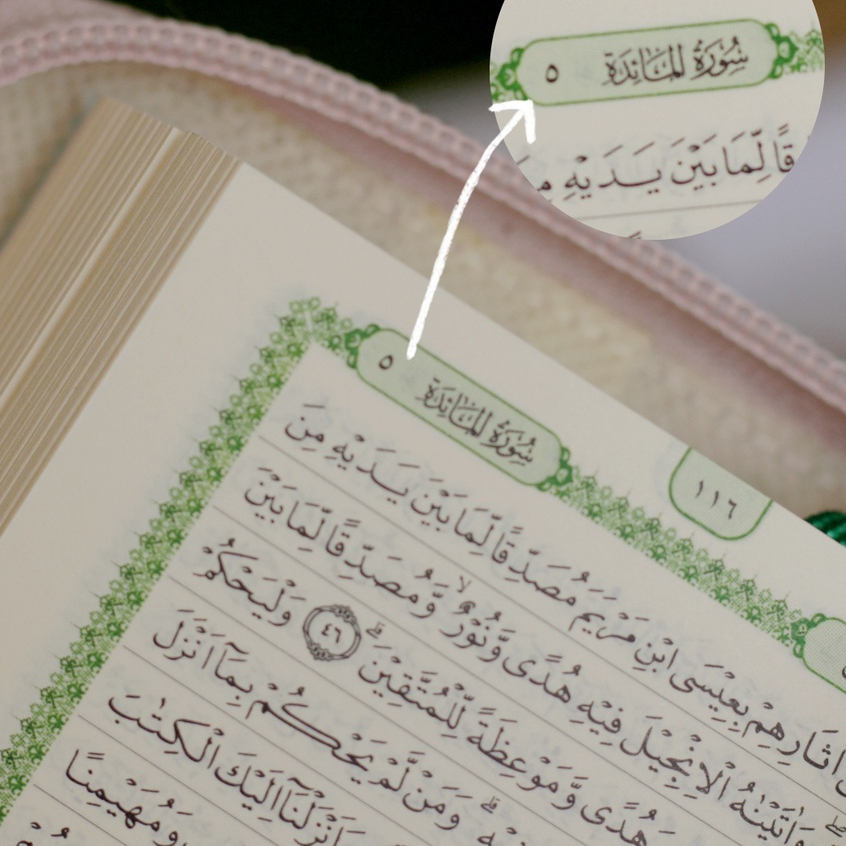 سُوْرَةُ الْمَائِدَةِ ٥
لِّمَا بَيْنَ يَدَيْهِ
١١٦
سُوْرَةُ الْمَائِدَةِ ٥
اٰثَارِهِمْ بِعِيْسَى ابْنِ مَرْيَمَ مُصَدِّقًا لِّمَا بَيْنَ يَدَيْهِ مِنَ
وَاٰتَيْنٰهُ الْاِنْجِيْلَ فِيْهِ هُدًى وَّنُوْرٌۙ وَّمُصَدِّقًا لِّمَا بَيْنَ
هُدًى وَّمَوْعِظَةً لِّلْمُتَّقِيْنَۗ ٤٦ وَلْيَحْكُمْ
وَمَنْ لَّمْ يَحْكُمْ بِمَآ اَنْزَلَ
اَنْزَلْنَآ اِلَيْكَ الْكِتٰبَ
وَمُهَيْمِنًا